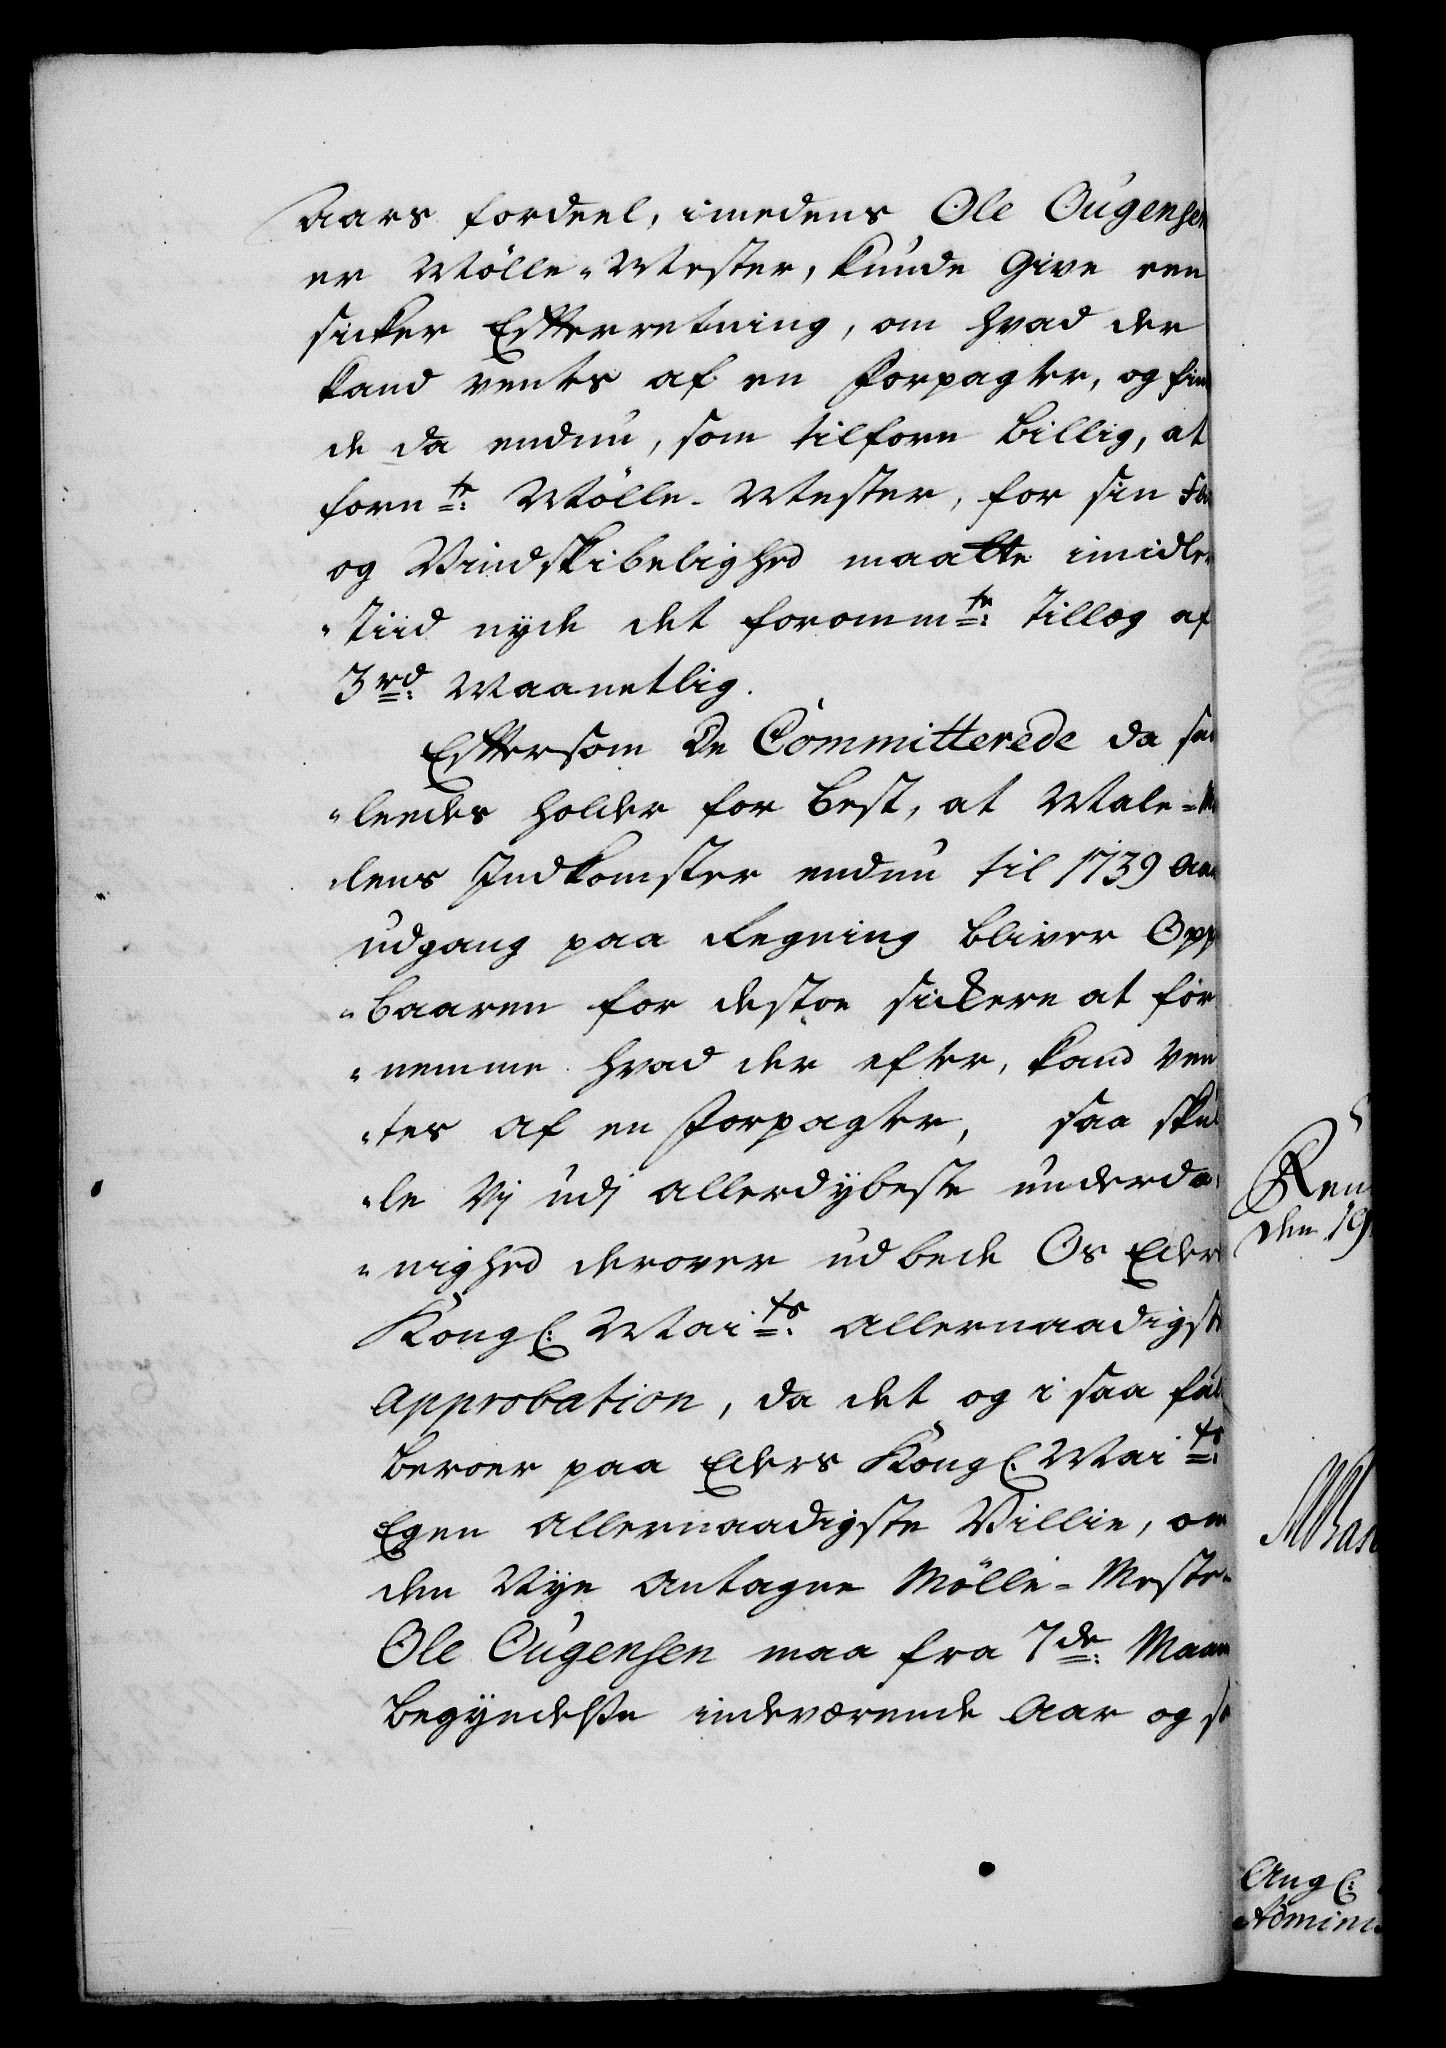 Aars fordeel, imedens Ole Ougensen
er Mölle-Mester, kunde give een
sicker Efterretning, om hvad der
kand ventes af en Forpagter, og fin
de da endnu, som tilforn billig, at
forn^te: Mölle-Mester, for sin
og Vindskibelighed maatte imidler-
-Tiid nyde det foromm^te: Tillæg af
3 rd: Maanetlig.
Eftersom De Committerede da saa
-leedes holder for best, at Male-Mö
lens Indkomster endnu til 1739 Aars
udgang paa Regning bliver Opp
-baaren for destoe sickere at for
-nemme hvad der efter, kand Ven
-tes af en Forpagter, saa skul
-le Vj udj allerdybeste underda-
-nighed derover udbede Os Eders
Kongl: Mai^ts: allernaadigste
Approbation, da det og i saa fald
beroer paa Eders Kongl: Mai^ts:
Egen allernaadigste Villie, om
den Nye antagne Mölle-Mester
Ole Ougensen maa fra 7^de: Maan
begyndelse indeværende Aar og
Ren
den 19
Angl:
Admini